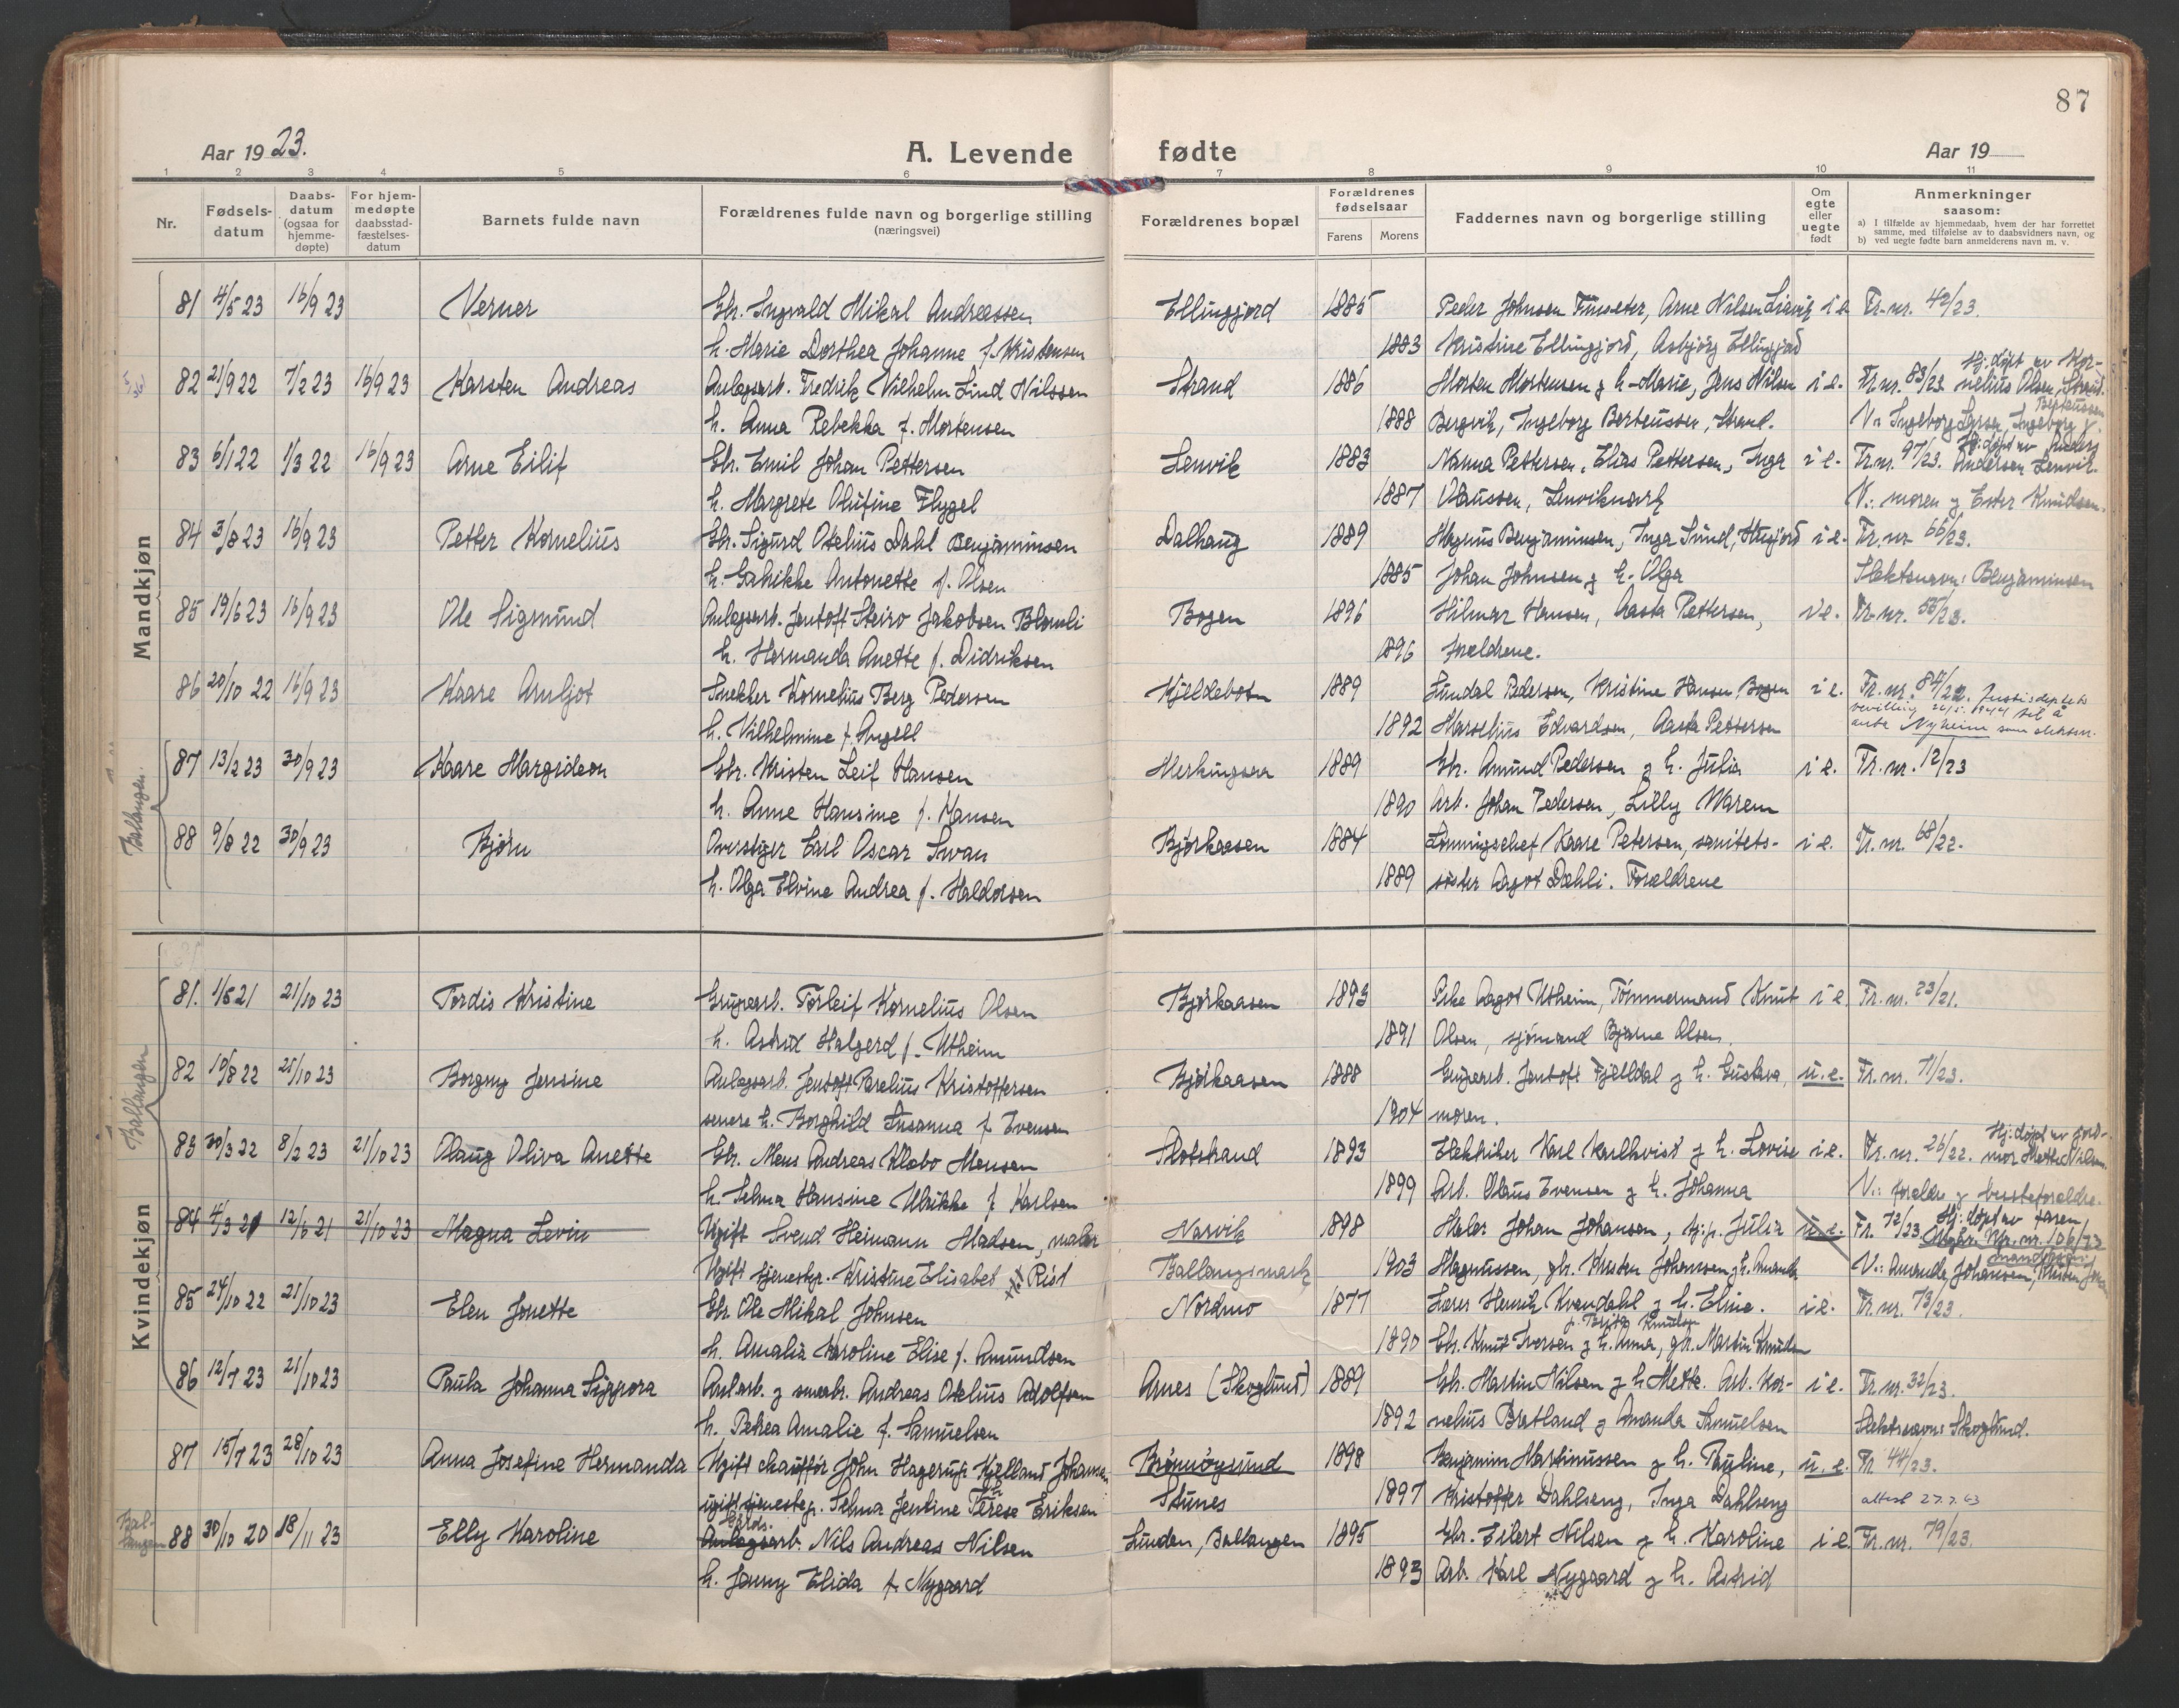 87
Aar 1923.
A. Levende fødte
Aar 19
1 2 3 4 5 6 7 8 9 10 11
Nr.
Fødsels-datum
Daabs-datum (ogsaa for hjemme-døpte)
For hjem-medøpte daabsstad-fæstelses-datum
Barnets fulde navn
Forældrenes fulde navn og borgerlige stilling
(næringsvei)
Forældrenes bopæl
Forældrenes fødselsaar
Farens Morens
Faddernes navn og borgerlige stilling
Om egte eller uegte født
Anmerkninger
saasom:
a) I tilfælde av hjemmedaab, hvem der har forrettet samme, med tilføielse av to daabsvidners navn, og
b) ved uegte fødte barn anmelderens navn m. v.
Mandkjøn
81 4/5 23 16/9 23 Verner Gbr. Ingvald Mikal Andreassen Ellingjord 1885 Peder Johnsen Furuseter, Arne Nilsen i e. Fr. nr. 42/23.
h. Marie Dorthea Johanne f. Kristensen 1883 Kristine Ellingjord, Asbjørg Ellingjord
82 21/9 22 7/2 23 16/9 23 Karsten Andreas Anlegsarb. Fredrik Vilhelm Lind Nilssen Strand 1886 Morten Mortensen og h. Marie, Jens Nilsen i e. Fr. nr. 83/23. Hj. døpt av Kornelius Olsen, Strand.
h. Anna Rebekka f. Mortensen 1888 Bergvik, Ingeborg Berteussen, Strand. V.: Ingeborg Larsen, Ingeborg Berteussen
83 6/1 22 1/3 22 16/9 23 Arne Eilif Gbr. Emil Johan Pettersen Lenvik 1883 Nanna Pettersen, Elias Pettersen, Inga i e. Fr. nr. 97/23. Hj. døpt av Anders Andersen Lenvik.
h. Margrete Olufine Flygel 1887 Olaussen, Lenvikmark V.: moren og Ester Knudsen.
84 3/8 23 16/9 23 Petter Kornelius Gbr. Sigurd Otelius Dahl Benjaminsen Dalhaug 1889 Magnus Benjaminsen, Inga Sund, i e. Fr. nr. 66/23.
h. Antonette f. Olsen 1885 Johan Johnsen og h. Olga Slektsnavn: Benjaminsen
85 19/6 23 16/9 23 Ole Sigmund Anlegsarb. Jentoft Steiro Jakobsen Blomli Bogen 1896 Hilmar Hansen, Aasta Pettersen, i e. Fr. nr. 55/23.
h. Hermanda Anette f. Didriksen 1896 forældrene.
86 20/10 22 16/9 23 Kaare Arnljot Snekker Kornelius Berg Pedersen Kjeldebotn 1889 Lundal Pedersen, Kristine Hansen, Bogen i e. Fr. nr. 84/22. Justisdeptets bevilling 26/5. 1944 til å
h. Vilhelmine f. Angell 1892 Marselius Edvardsen, Aasta Pettersen anta Nyheim som slektsn.
Ballangen.
87 13/2 23 30/9 23 Kaare Margideon Gbr. Kristen Leif Hansen 1889 Gbr. Amund Pedersen og h. Julia i e. Fr. nr. 12/23
h. Anne Hansine f. Hansen 1890 Arb. Johan Pedersen, Lilly Maren
88 9/8 22 30/9 23 Bjørn Overstiger Carl Oscar Svan Bjørkaasen 1884 Lønningschef Kaare Petersen, sanitets- i e. Fr. nr. 68/22.
h. Olga Elvine Andrea f. Haldorsen 1889 søster Aagot Dæhli. Forældrene
Kvindekjøn
Ballangen
81. 1/5 21 21/10 23 Tordis Kristine Grubearb. Torleif Kornelius Olsen Bjørkaasen 1893 Pike Aagot Utheim, Tømmermand Knut i e. Fr. nr. 23/21.
h. Astrid Halgerd f. Utheim 1891 Olsen, sjømand Bjarne Olsen.
82 19/8 22 21/10 23 Borgny Jensine Anlegsarb. Jentoft Parelius Kristoffersen Bjørkaasen 1888 Grubearb. Jentoft Fjelldal og h. Gustava, u. e. Fr. nr. 71/23.
senere h. Borghild Susanna f. Evensen 1904 moren.
83 30/3 22 8/2 23 21/10 23 Olaug Oliva Anette Gbr. Mons Andreas Klæbo Monsen 1893 Elektriker Karl Karlkvist og h. Lovise i e. Fr. nr. 26/22. Hj. døpt av jordmor Mette Nilsen.
h. Selma Hansine Ulrikke f. Karlsen 1899 Arb. Olaus Evensen og h. Johanna V.: Foreldre og besteforeldre.
84 4/3 21 12/6 21 21/10 23 Magna Levin Ugift Svend Heimann Madsen, maler Narvik 1898 Maler Johan Johansen, Julia u. e. Fr. 72/23. Hj. døpt av faren Utgår. Nr. 106/23 mandkjøn
Ugift tjenestp. Kristine Elisabet Rist Ballangsmark 1903 Magnussen, gbr. Kristen Johansen og h. Amanda V.: Amanda Johansen, Kristen
85 24/10 22 21/10 23 Elen Jonette Gbr. Ole Mikal Johnsen Nordmo 1877 Lærer Henrik Kvandahl og h. Eline. i e. Fr. nr. 73/23.
h. Amalia Karoline Elise f. Amundsen 1890 Gbr. Knut Iversen og h. Anna, gbr. Martin Knudsen
86 12/7 23 21/10 23 Paula Johanna Siggora Anl.arb. og smaabr. Andreas Otelius Adolfsen Arnes (Skoglund) 1889 Gbr. Martin Nilsen og h. Mette. Arb. Kor- i e. Fr. nr. 32/23.
h. Petrea Amalie f. Samuelsen 1892 nelius Bratland og Amanda Samuelsen Slektsnavn: Skoglund.
87 15/7 23 28/10 23 Anna Josefine Hermanda Ugift chauffør John Hagerup Kjelland Johansen Brønnøysund 1898 Benjamin Martinussen og h. Pauline, u. e. Fr. 44/23.
ugift tjenestep. Selma Jentine Terese Eriksen Stunes 1897 Kristoffer Dahlseng, Inga Dahlseng attest 27.7.43
Ballangen 88 30/10 20 18/11 23 Elly Karoline Anlegsarb. Nils Andreas Nilsen Linden, Ballangen 1895 Gbr. Eilert Nilsen og h. Karoline i e. Fr. nr. 79/23.
h. Jenny Elida f. Nygaard 1893 Arb. Karl Nygaard og h. Astrid